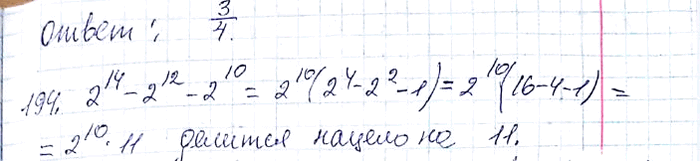 Ответ: 3/4.
194. 2¹⁴ - 2¹² - 2¹⁰ = 2¹⁰(2⁴ - 2² - 1) = 2¹⁰(16 - 4 - 1) =
= 2¹⁰ · 11 делится нацело на 11.